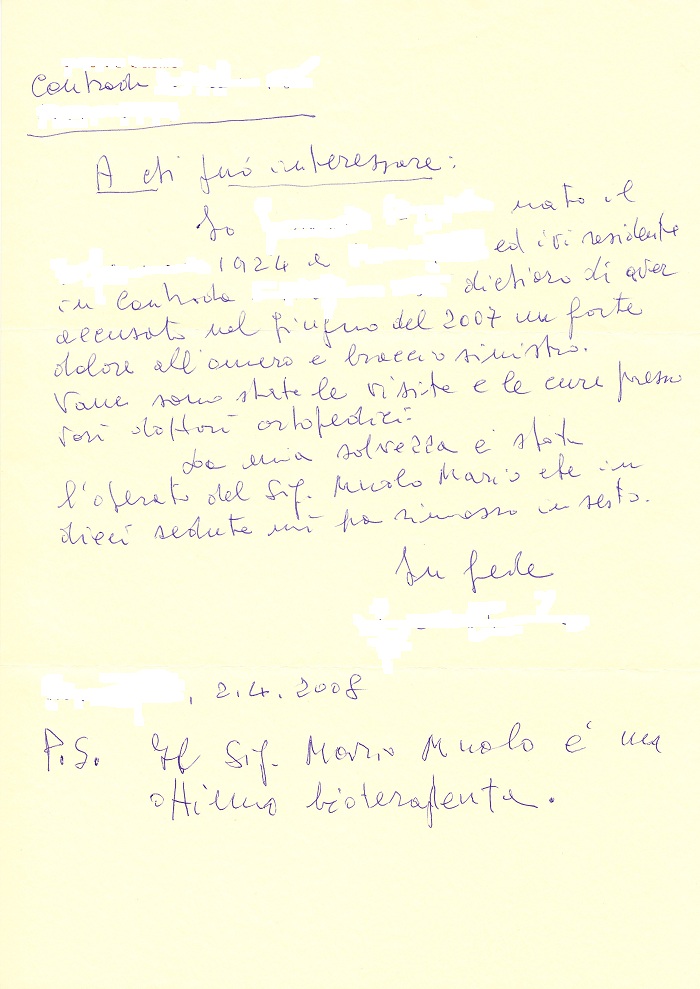 Contrada
A chi può interessare:
Io nato il
1924 a ed ivi residente
in Contrada dichiaro di aver
accusato nel giugno del 2007 un forte
dolore all'omero e braccio sinistro.
Vane sono state le visite e le cure presso
vari dottori ortopedici.
La mia salvezza è stata
l'operato del Sig. Muolo Mario che in
dieci sedute mi ha rimesso in sesto.
In fede
, 2.4.2008
P.S. Il Sig. Mario Muolo é un
ottimo bioterapeuta.